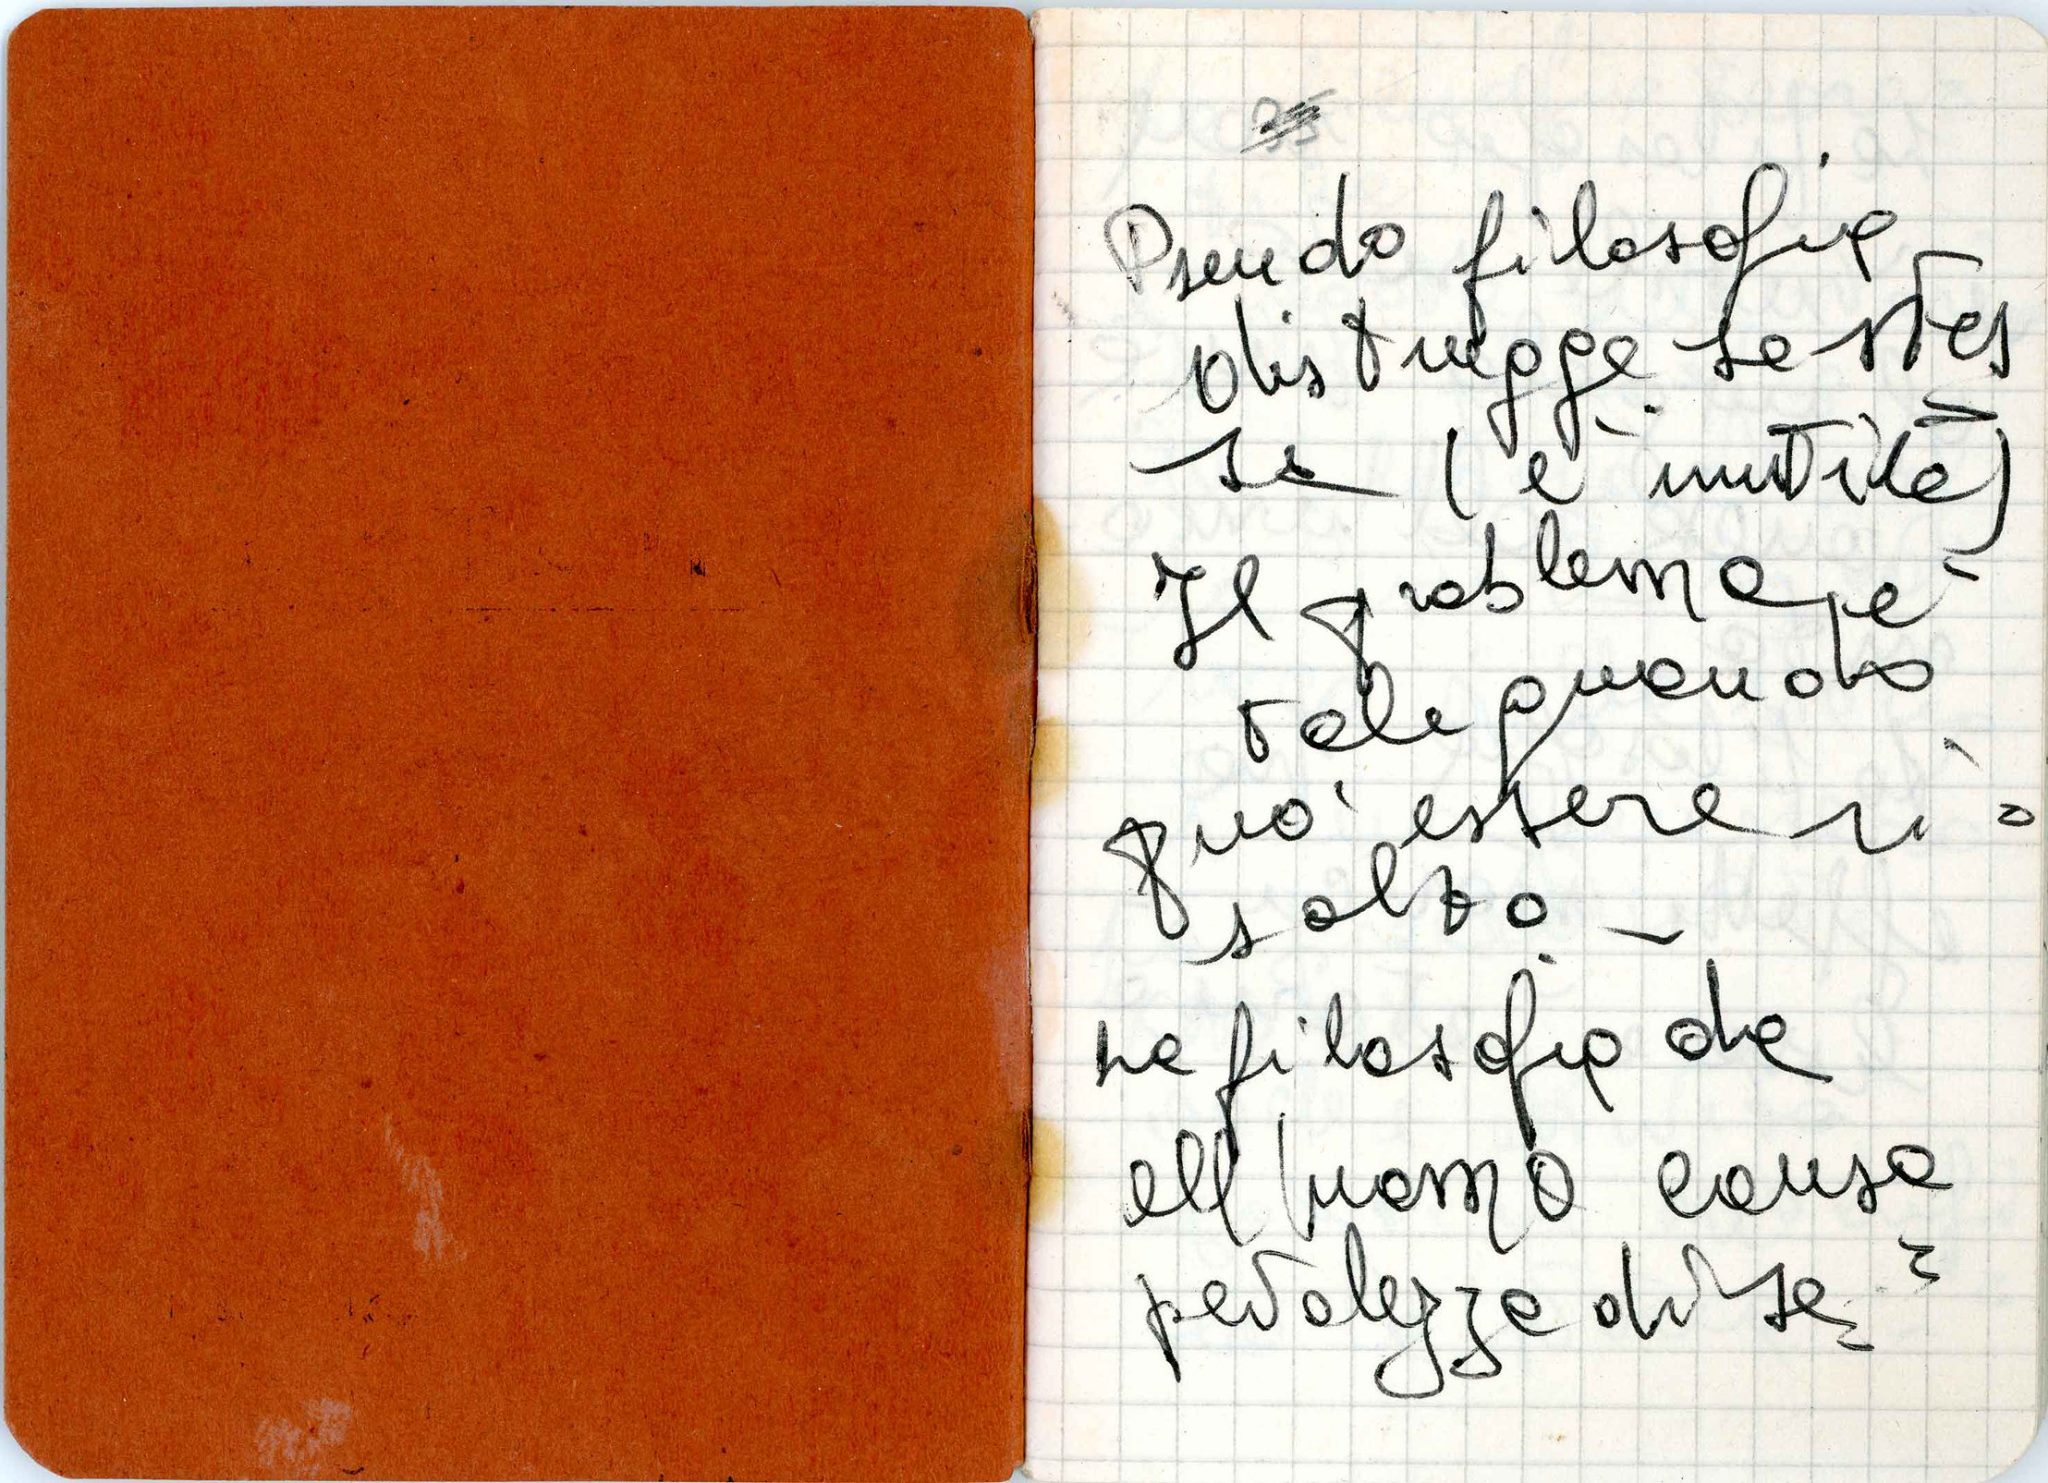 Pseudo filosofia
distrugge se stes
sa (è inutile)
Il problema è
tale quando
può essere ri-
solto -
La filosofia dà
all'uomo consa
pevolezza di sé